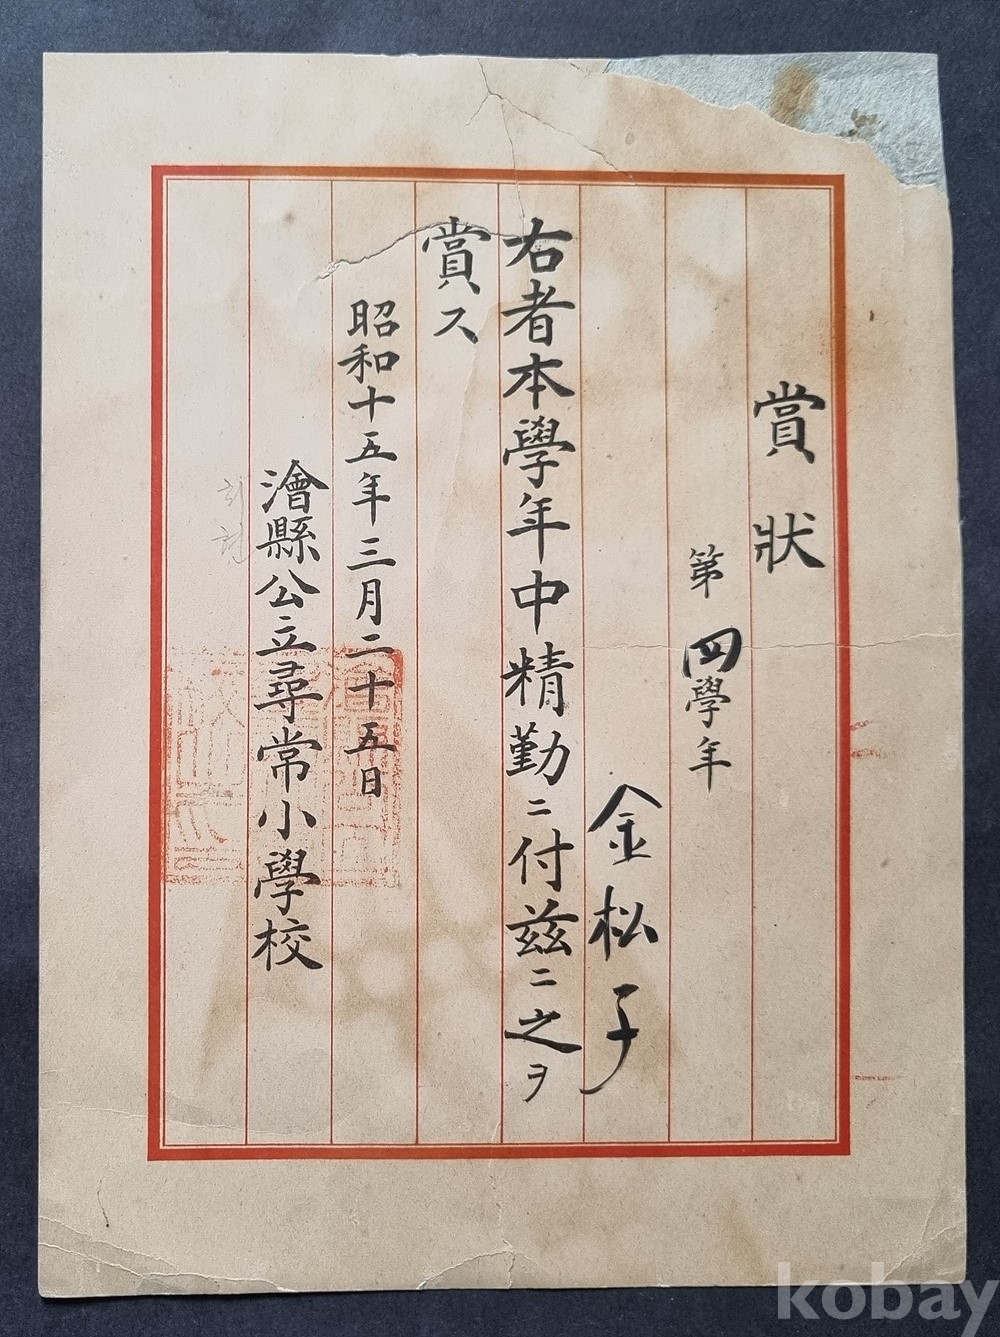 賞狀
第四學年
金松子
右者本學年中精勤ニ付茲ニ之ヲ
賞ス
昭和十五年三月二十五日
澮縣公立尋常小學校
회현
kobay